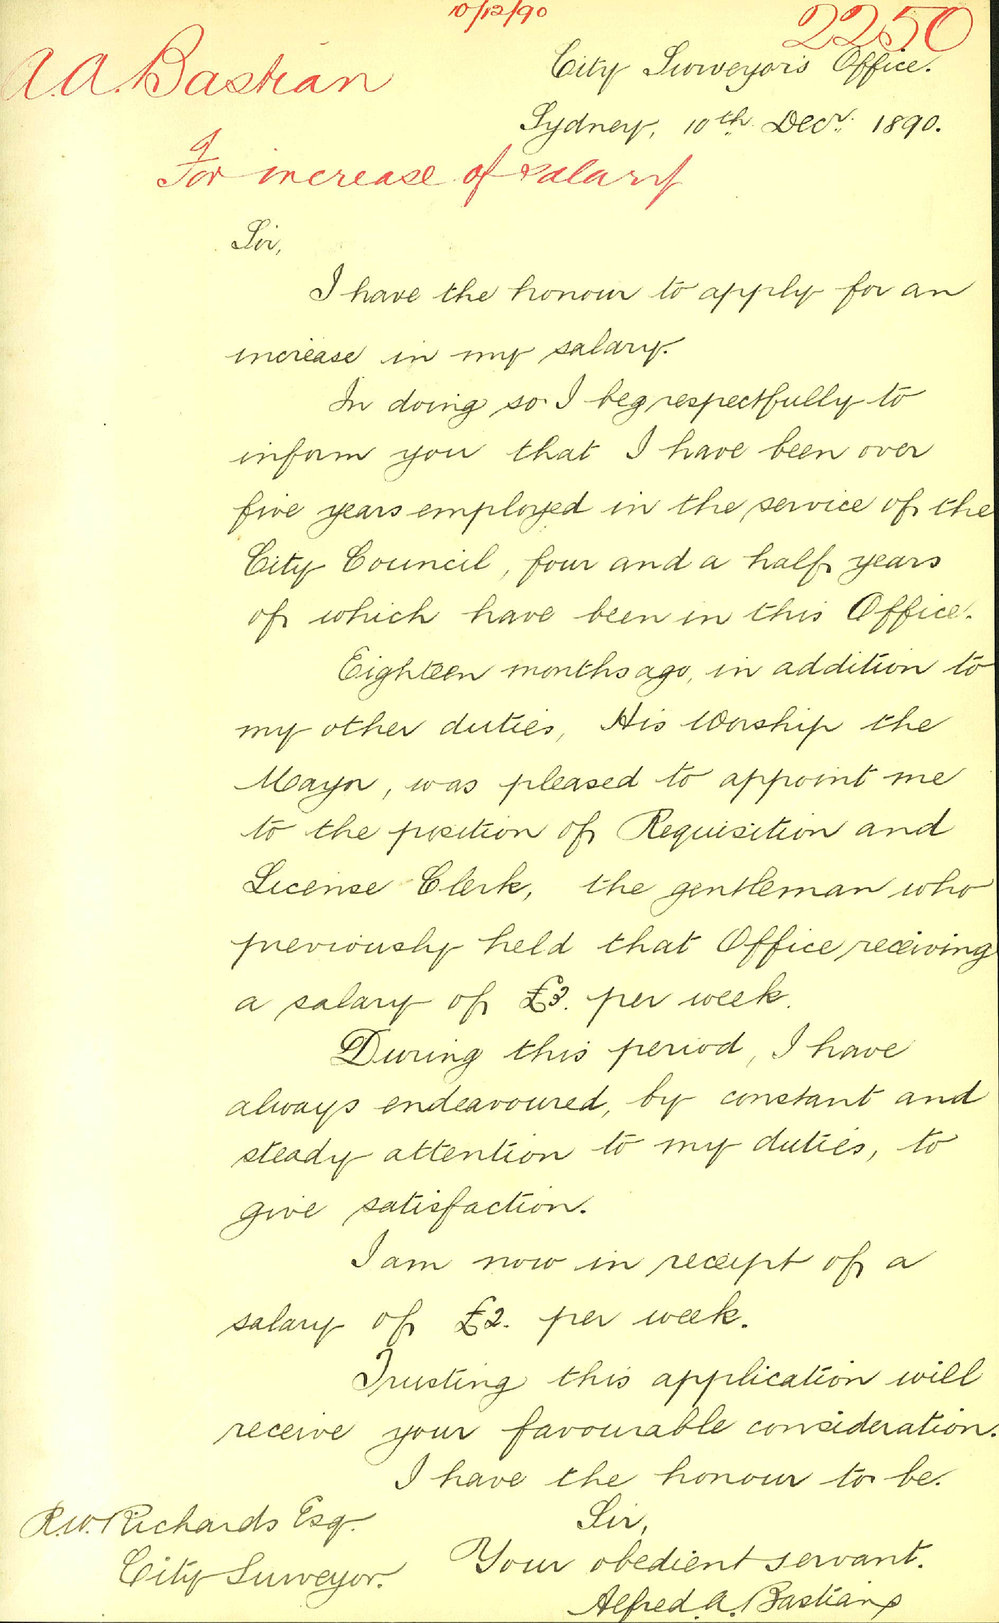 10/12/90
2250
A. A. Bastian
City Surveyor's Office.
Sydney, 10th Decr. 1890.
For increase of salary
Sir,
I have the honour to apply for an
increase in my salary.
In doing so I beg respectfully to
inform you that I have been over
five years employed in the service of the
City Council, four and a half years
of which have been in this Office.
Eighteen months ago, in addition to
my other duties, His Worship the
Mayor, was pleased to appoint me
to the position of Requisition and
License Clerk, the gentleman who
previously held that Office receiving
a salary of £3. per week.
During this period, I have
always endeavoured, by constant and
steady attention to my duties, to
give satisfaction.
I am now in receipt of a
salary of £2. per week.
Trusting this application will
receive your favourable consideration.
I have the honour to be.
Sir,
Your obedient servant.
Alfred. A. Bastian
R. W. Richards Esq.
City Surveyor.